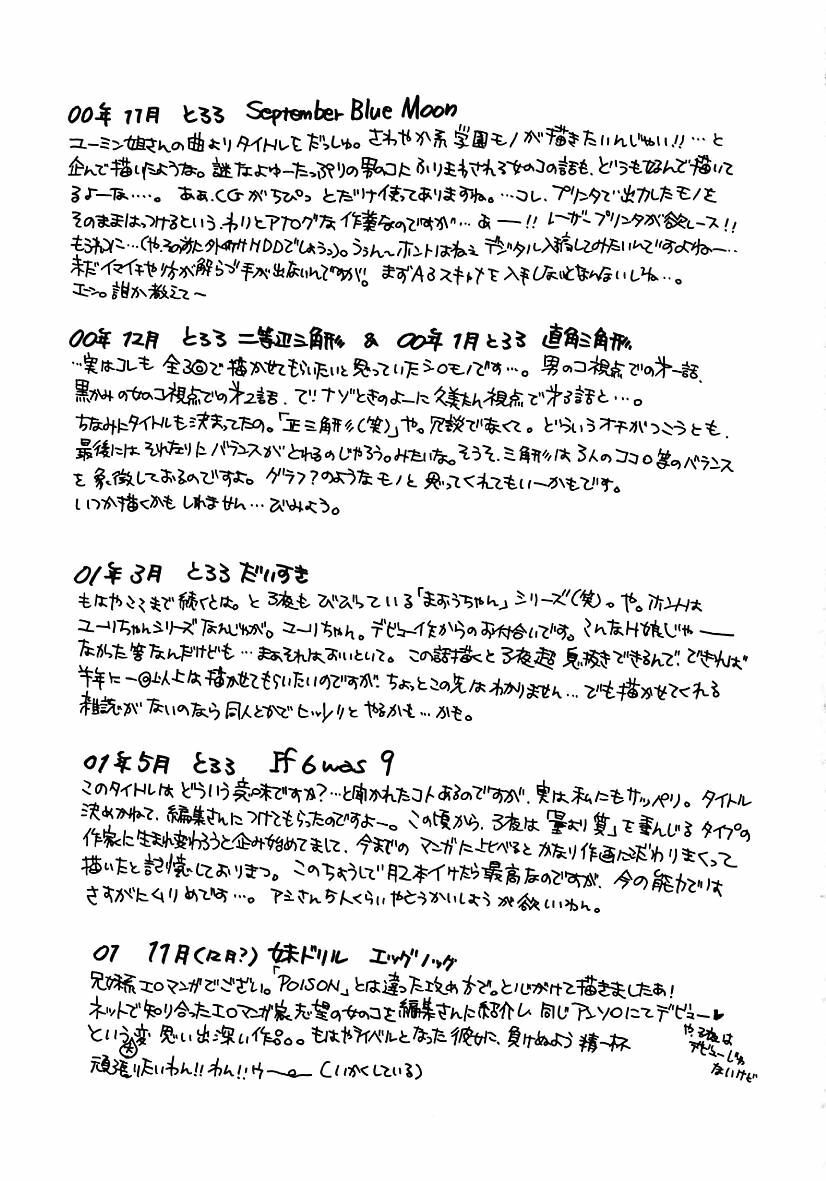 00年11月 とろろ September Blue Moon
ユーミン姐さんの曲よりタイトルをだっしゅ。さわやか系学園モノが描きたいんじゃい!!…と
企んで描いたような。謎なよゆーたっぷりの男のコにふりまわされる女のコの話も、どうもなんで描いて
るよーな‥‥。ああ、CGがちぴっとだけ使ってありますね。…コレ、プリンタで出力したモノを
そのままはっつけるという、わりとアナログな作業なのですが…あ――!!レーザープリンタが欲しース!!
もろねに…(や、その前に外付けHDDでしょうっ)。うぅん~ホントはねぇデジタル入稿してみたいんですよね~‥
未だイマイチやり方が解らず手が出ないんですが。まずA3スキャナを入手しないとなんないしね…。
エーン。誰か教えて~
00年12月 とろろ 二等辺三角形 & 00年1月とろろ 直角三角形
…実はコレも全3回で描かせてもらいたいと思っていたシロモノです…。男のコ視点での第一話、
黒かみの女のコ視点での第2話、で!ナゾときのよーに久美たん視点で第3話と…。
ちなみにタイトルも決まってたの。「正三角形(笑)」や。冗談でなくて。どういうオチがつこうとも、
最後にはそれなりにバランスがとれるのじゃろう。みたいな。そうそ、三角形は3人のココロ等のバランス
を象徴しておるのですよ。グラフ?のようなモノと思ってくれてもいーかもです。
いつか描くかもしれません…びみょう。
01年3月 とろろ だいすき
もはやここまで続くとは。と3夜もびびっている「まおうちゃん」シリーズ(笑)。や。ホントは
ユーリちゃんシリーズなんじゃが。ユーリちゃん。デビュー作からのお付合いです。こんなH娘じゃ――
なかった筈なんだけども…まぁそれはおいといて。この話描くと3夜超息抜きできるんで、できれば
半年に一回以上は描かせてもらいたいのですが、ちょっとこの先はわかりません…でも描かせてくれる
雑誌がないのなら同人とかでヒッソリとやるかも…かも。
01年5月 とろろ If 6 was 9
このタイトルはどういう意味ですか?…と聞かれたコトあるのですが、実は私にもサッパリ。タイトル
決めかねて、編集さんにつけてもらったのですよー。この頃から、3夜は「量より質」を重んじるタイプの
作家に生まれ変わろうと企み始めてまして、今までのマンガに比べるとかなり作画にこだわりまくって
描いたと記憶しておりまつ。このちょうしで月2本イけたら最高なのですが、今の能力では
さすがにムリめです…。アシさん5人くらいやとうかいしょうが欲いわん。
01 11月(12月?) 妹ドリル エッグノッグ
兄妹系エロマンガでござい。「POISON」とは違った攻め方で。と心がけて描きましたぁ!
ネットで知り合ったエロマンガ家志望の女のコを編集さんに紹介し同じアンソロにてデビュー♥
という変(大)思い出深い作品。もはやライバルとなった彼女に、負けぬよう精一杯
頑張りたいわん!!わん!!ウ~。(いかくしている)
や、3夜は
デビューじゃ
ないけど